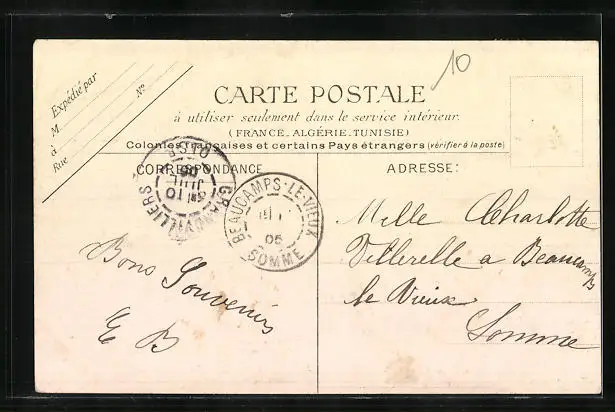 10
Expédié par
M.
à
Rue
No.
CARTE POSTALE
à utiliser seulement dans le service intérieur.
(FRANCE_ALGÉRIE_TUNISIE)
Colonies françaises et certains Pays étrangers (vérifier à la poste)
CORRESPONDANCE
ADRESSE:
GRANDVILLIERS
OISE
10
JUIL
05
BEAUCAMPS-LE-VIEUX
05
SOMME
Bons Souvenirs
E B
Melle Charlotte
Villerelle a Beaucamps
le Vieux
Somme